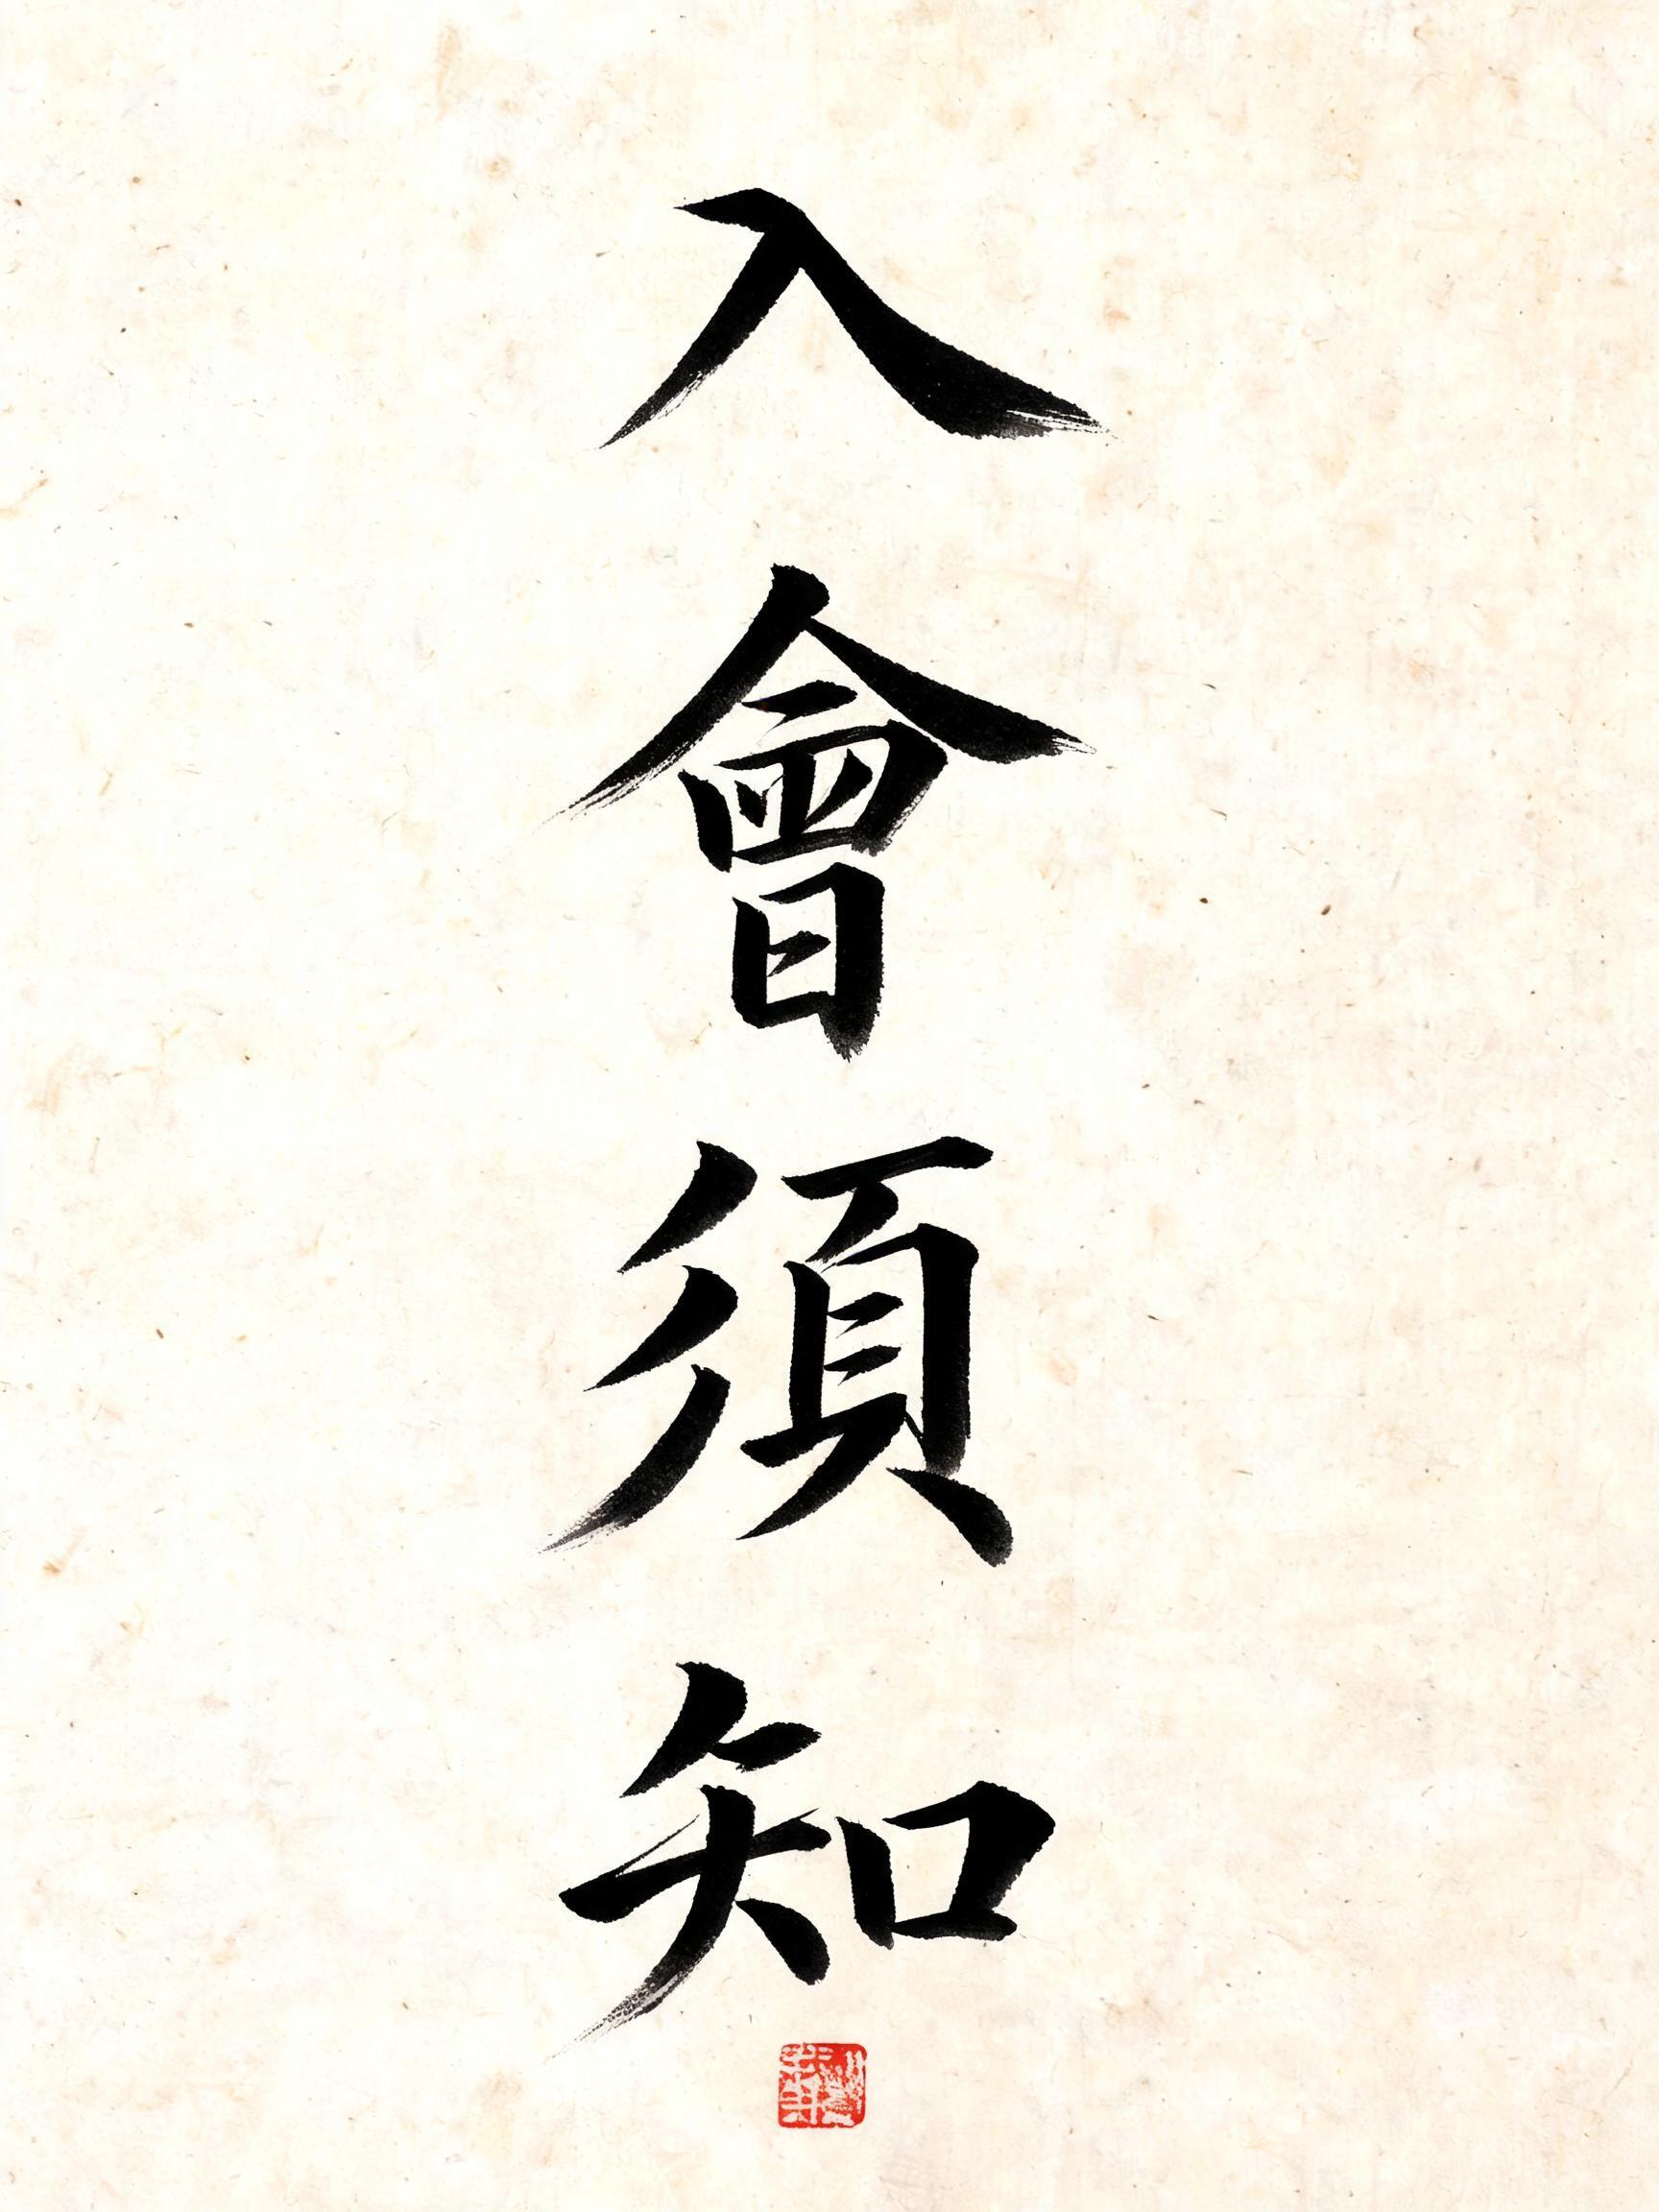 入會須知